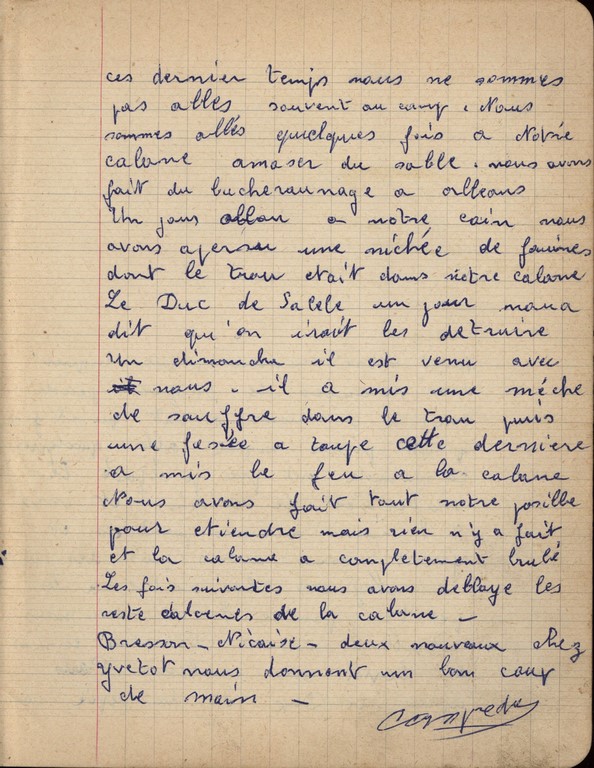 ces dernier temps nous ne sommes
pas allés souvent au camp. Nous
sommes allés quelques fois a Notre
cabane amaser du sable. nous avons
fait du bucheraunage a orleans
Un jour allan a notre coin nous
avons apersu une nichée de fouines
dont le trou etait dans notre cabane
Le Duc de un jour nous a
dit qu'on irait les detruire
Un dimanche il est venu avec
nous. il a mis une méche
de souffre dans le trou puis
une fusée a taupe cette derniere
a mis le feu a la cabane
Nous avons fait tout notre posible
pour etiendre mais rien n'y a fait
et la cabane a completement brulé
Les fois suivantes nous avons deblaye les
reste calcenés de la cabane –
Bresson – Nicaise – deux nouveaux chez
yvetot nous donnont un bon coup
de main –